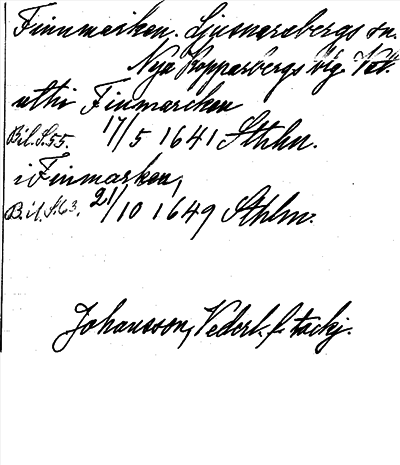 Finnmarken. Ljusnarsbergs sn.
Nya Kopparbergs blg. Vstm.
uthi Finmarcken
Bil. S. 55. 17/5 1641 Sthlm.
i Finmarken,
Bil. S. 63. 21/10 1649 Sthlm.
Johansson, Vederl. f. tackj.